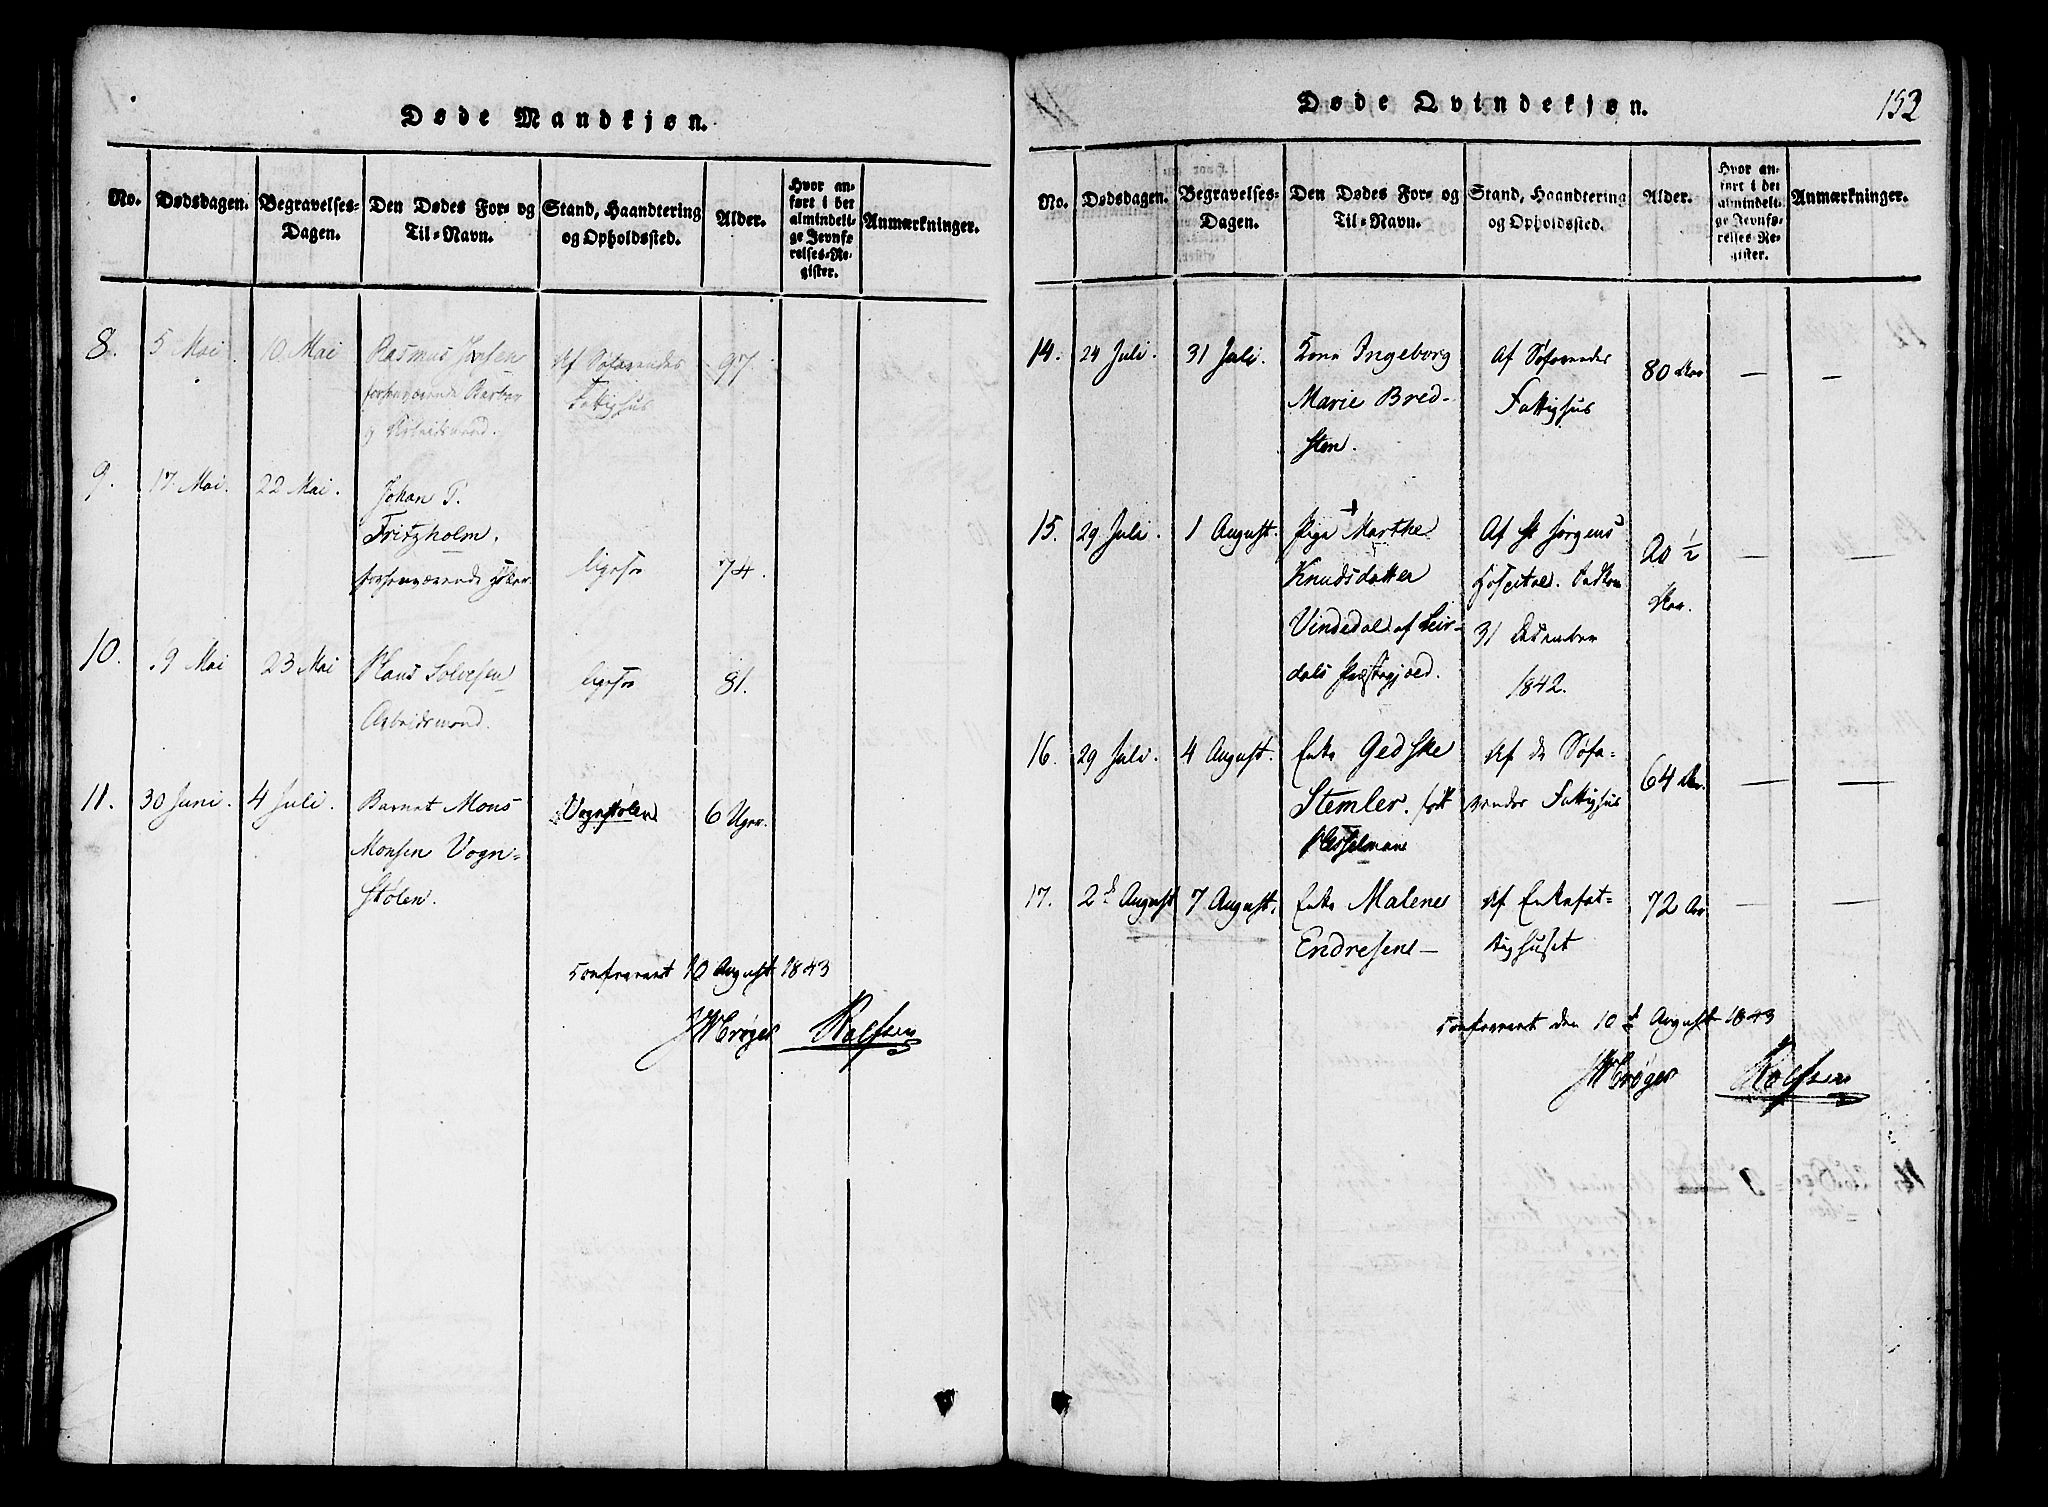 Døde Mandkjøn.
No.
Dødsdagen.
Begravelses-
Dagen.
Den Dødes For- og
Til-Navn.
Stand, Haandtering
og Opholdssted.
Alder.
Hvor an-
ført i det
almindeli-
ge Jevnfø-
relses-Re-
gister.
Anmærkninger.
8.
5 Mai
10 Mai
Rasmus
forhenværende
og Arbeidsmand.
Af Søfarendes
Fattighus
97.
9.
17. Mai.
22 Mai.
Johan P.
Fritzholm.
forhenværende
ligesaa
74.
10.
19 Mai
23 Mai
Hans Solvesen
Arbeidsmand.
ligesaa
81.
11.
30 Juni.
4 Juli.
Barnet Mons
Monsen Vogn-
stølen.
Vognstølen
6 Uger.
Confereret 10 August 1843
JWCrøger
Døde Qvindekjøn.
152
No.
Dødsdagen.
Begravelses-
Dagen.
Den Dødes For- og
Til-Navn.
Stand, Haandtering
og Opholdssted.
Alder.
Hvor an-
ført i det
almindeli-
ge Jevnfø-
relses-Re-
gister.
Anmærkninger.
14.
24 Juli.
31 Juli.
Kone Ingeborg
Marie Bred-
sten.
Af Søfarendes
Fattighus
80 Aar
—
—
15.
29 Juli.
1 August.
Pige Marthe
Knudsdatter
Vindedal af Leir-
dals Præstegjeld.
Af St Jørgens
Hospital. Indkom
31 December
1842.
20 1/2
Aar.
—
—
16.
29 Juli.
4 August.
Enke Gedske
Stemler. født
Hesselmann
Af de Søfa-
rendes Fattighus
64 Aar.
—
—
17.
2d August
7 August.
Enke Malene
Endresen
Af Enkefat-
tighuset
72 Aar
—
—
Confereret den 10d August 1843
JWCrøger